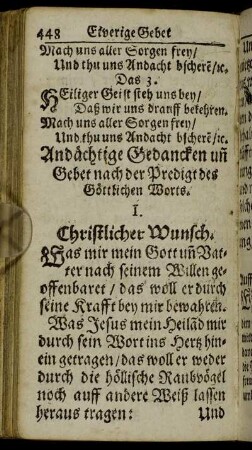 448 Eiverige Gebet
Mach uns aller Sorgen frey/
Und thu uns Andacht bscherē/ꝛc.
Das 3.
HEiliger Geist steh uns bey/
Daß wir uns drauff bekehren.
Mach uns aller Sorgen frey/
Und thu uns Andacht bscherē/ꝛc.
Andächtige Gedancken uñ
Gebet nach der Predigt des
Göttlichen Worts.
I.
Christlicher Wunsch.
Was mir mein Gott uñ Vat-
ter nach seinem Willen ge-
offenbaret / das woll er durch
seine Krafft bey mir bewahren.
Was Jesus mein Heilād mir
durch sein Wort ins Hertz hin-
ein getragen/das woll er weder
durch die höllische Raubvögel
noch auff andere Weiß lassen
heraus tragen: Und